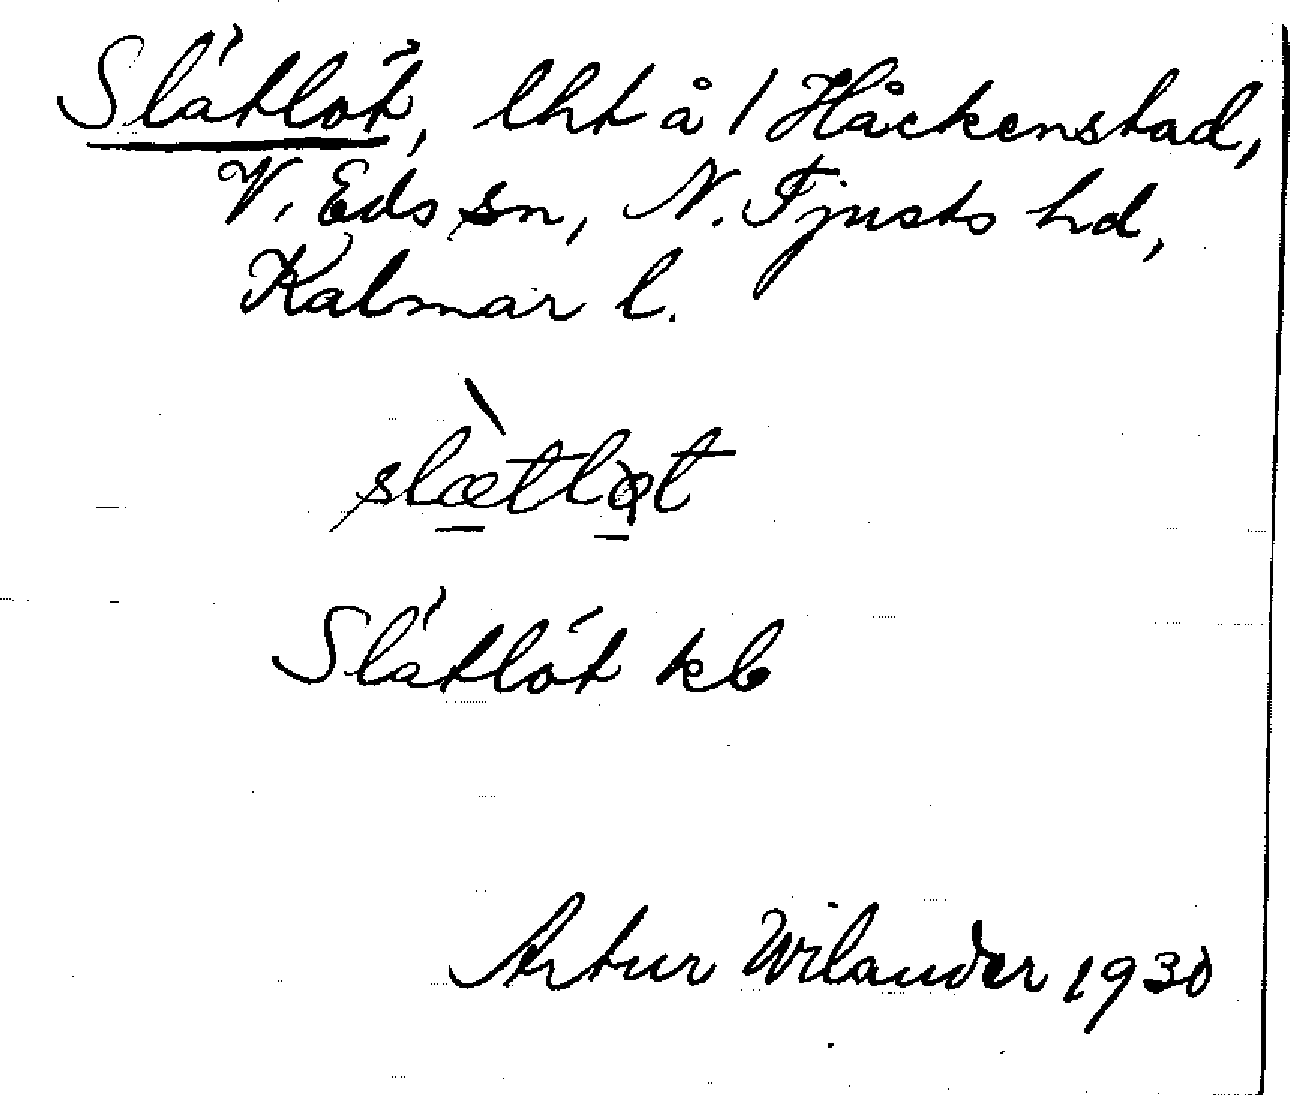 Slátlót, lht å / Håckenstad,
V. Eds sn, N. Tjusts hd,
Kalmar l.
Slátlót kb
Artur Wilander 1930